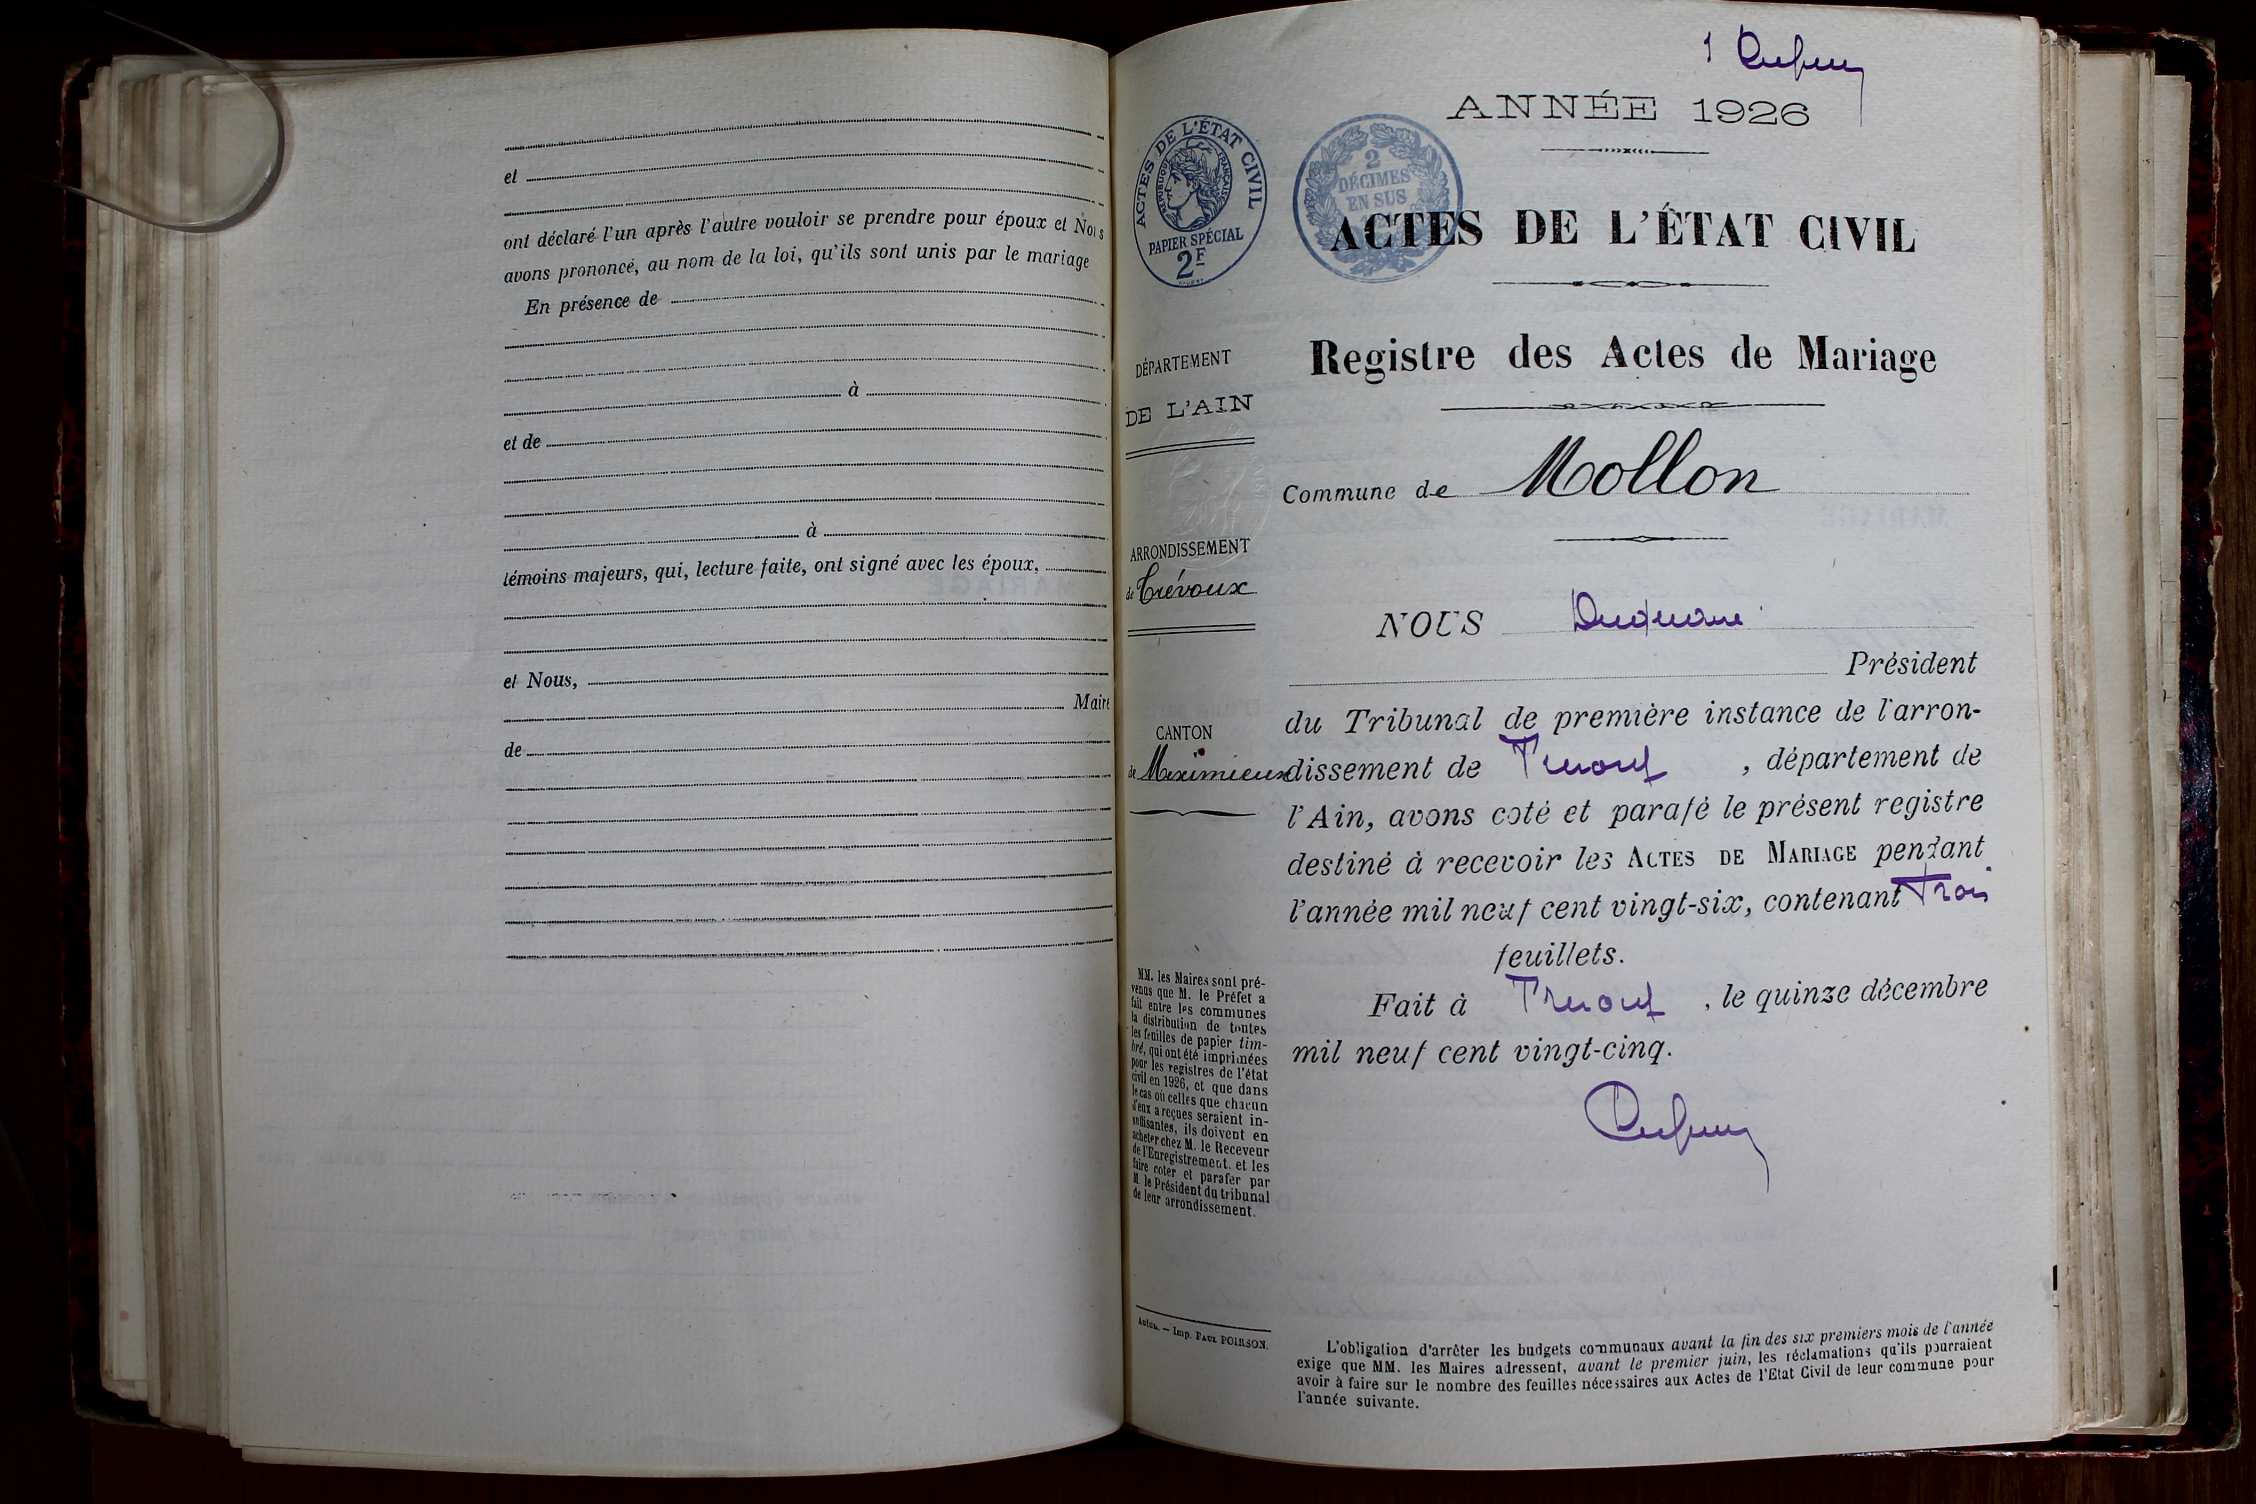 et
ont déclaré l'un après l'autre vouloir se prendre pour époux et Nous
avons prononcé, au nom de la loi, qu'ils sont unis par le mariage
En présence de
à
et de
à
témoins majeurs, qui, lecture faite, ont signé avec les époux,
et Nous,
Maire
de
1
ANNÉE 1926
ACTES DE L'ÉTAT CIVIL
RÉPUBLIQUE FRANÇAISE
PAPIER SPÉCIAL
2F
2
DÉCIMES
EN SUS
ACTES DE L'ÉTAT CIVIL
Registre des Actes de Mariage
DÉPARTEMENT
DE L'AIN
Commune de Mollon
ARRONDISSEMENT
de Trévoux
CANTON
de Meximieux
NOUS
Président
du Tribunal de première instance de l'arron-
dissement de Trévoux, département de
l'Ain, avons coté et parafé le présent registre
destiné à recevoir les ACTES DE MARIAGE pendant
l'année mil neuf cent vingt-six, contenant Trois
feuillets.
Fait à Trévoux, le quinze décembre
mil neuf cent vingt-cinq.
MM. les Maires sont pré-
venus que M. le Préfet a
fait entre les communes
la distribution de toutes
les feuilles de papier tim-
bré, qui ont été imprimées
pour les registres de l'état
civil en 1926, et que dans
le cas où celles que chacun
d'eux a reçues seraient in-
suffisantes, ils doivent en
acheter chez M. le Receveur
de l'Enregistrement. et les
faire coter et parafer par
M. le Président du tribunal
de leur arrondissement.
Autun. — Imp. PAUL POIRSON.
L'obligation d'arrêter les budgets communaux avant la fin des six premiers mois de l'année
exige que MM. les Maires adressent, avant le premier juin, les réclamations qu'ils pourraient
avoir à faire sur le nombre des feuilles nécessaires aux Actes de l'Etat Civil de leur commune pour
l'année suivante.